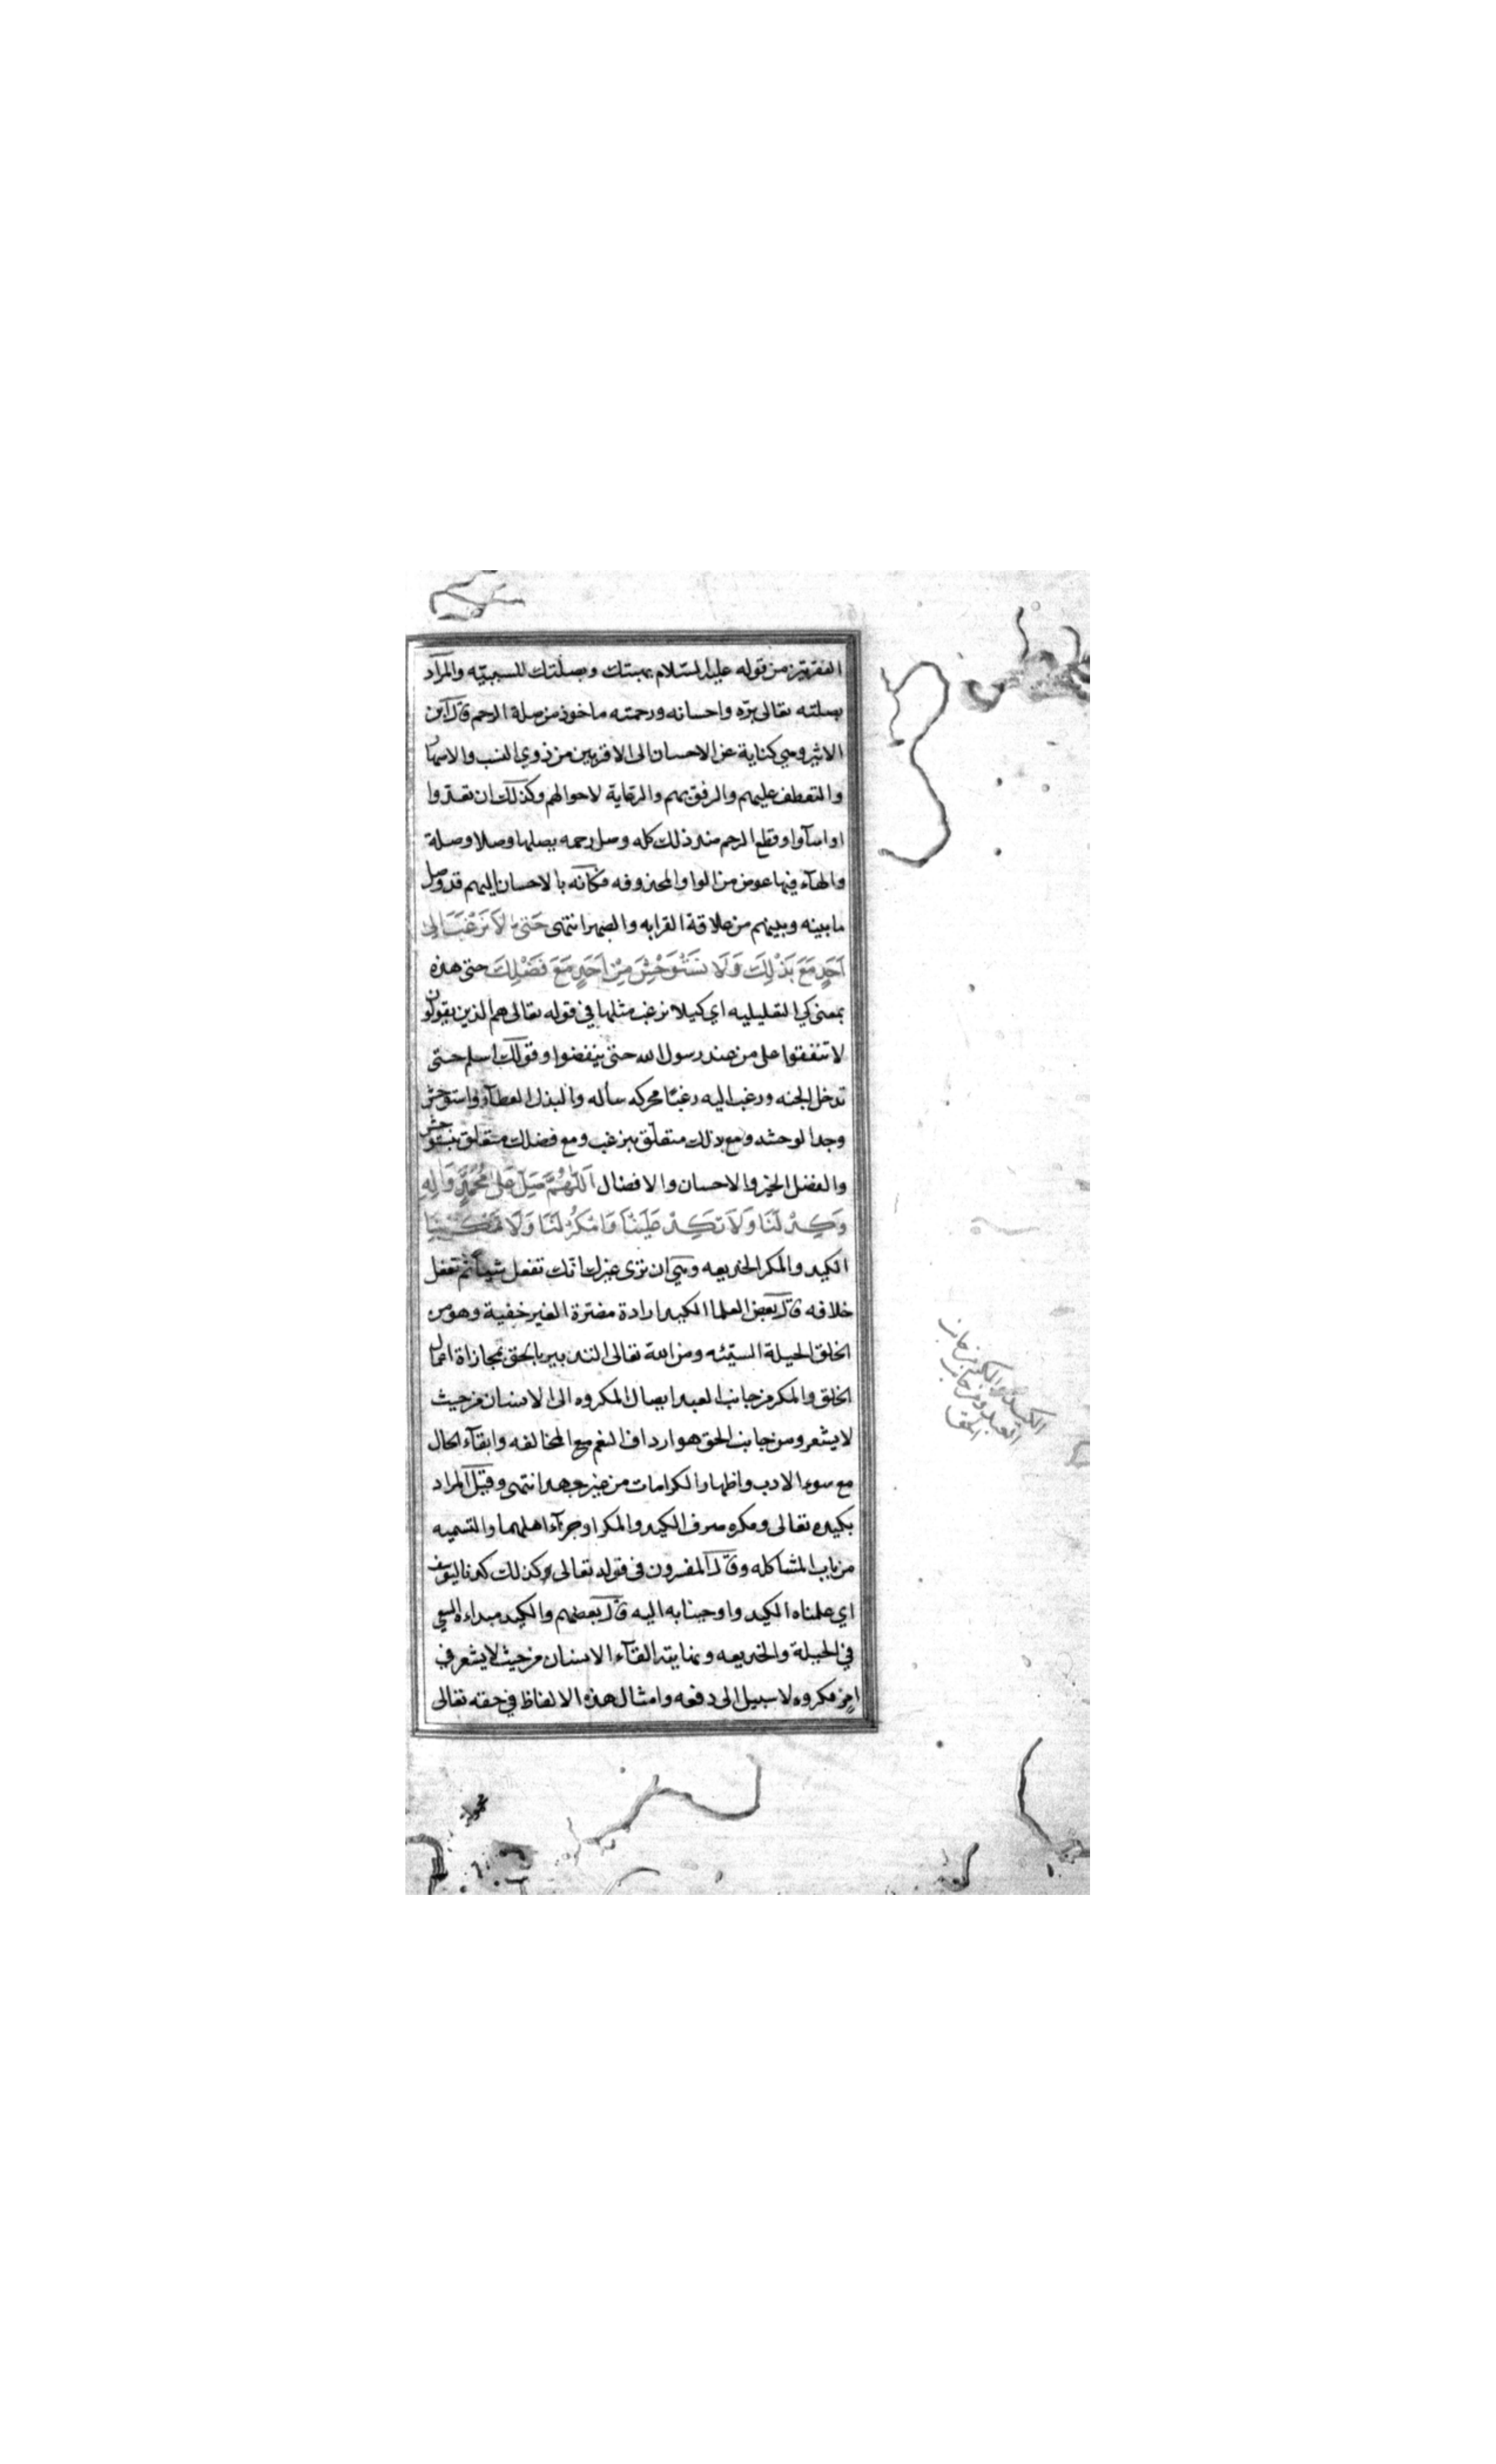 الفقرتين من قوله عليه السلام بهبتك وبصلتك للسببيّه والمراد
بصلته تعالى برّه واحسانه ورحمته ماخوذ من صلة الرحم قال ابن
الاثير وهي كناية عن الاحسان الى الاقربين من ذوي النسب والاصهار
والتعطف عليهم والرفق بهم والرعاية لاحوالهم وكذلك ان تعدوا
او اساوا وقطع الرحم ضد ذلك كله وصل رحمه يصلها وصلا وصلة
والهآء فيها عوض من الواو المحذوفه فكانّه بالاحسان اليهم قد وصل
ما بينه وبينهم من علاقة القرابه والصهر انتهى حَتّى لَا نَرْغَبَ اِلى
اَحَدٍ مَعَ بَذْلِكَ وَلَا نَسْتَوْحِشَ مِنْ اَحَدٍ مَعَ فَضْلِكَ حتى هذه
بمعنى كي التعليليه اي كيلا نرغب مثلها في قوله تعالى هم الذين يقولون
لا تنفقوا على من عند رسول الله حتى ينفضوا وقولك اسلم حتى
تدخل الجنه ورغب اليه رغبًا محركه سأله والبذل العطآء واستوحش
وجد الوحشه ومع بذلك متعلّق بنرغب ومع فضلك متعلق بنستوحش
والفضل الخير والاحسان والافضال اَللّهُمَّ صَلِّ عَلى مُحَمَّدٍ وَالِهِ
وَكِدْ لَنَا وَلَا تَكِدْ عَلَيْنَا وَامْكُرْ لَنَا وَلَا تَمْكُرْ بِنَا
الكيد والمكر الخديعه وهي ان ترى غيرك انّك تفعل شيئا ثم تفعل
خلافه قال بعض العلما الكيد ارادة مضرة الغير خفية وهو من
الخلق الحيلة السيّئه ومن الله تعالى التدبير بالحق بمجازاة اعمال
الخلق والمكر من جانب العبد ايصال المكروه الى الانسان من حيث
لا يشعر ومن جانب الحق هو ارداف النعم مع المخالفه وابقآء الحال
مع سوء الادب واظهار الكرامات من غير جهد انتهى وقيل المراد
بكيده تعالى ومكره صرف الكيد والمكر او جزآء اهلهما والتسميه
من باب المشاكله وقال المفسرون في قوله تعالى وكذلك كدنا ليوسف
اي علمناه الكيد واوحينا به اليه قال بعضهم والكيد مبداءه السعي
في الحيلة والخديعه ونهايته القآء الانسان من حيث لا يشعر في
امر مكروه لا سبيل الى دفعه وامثال هذه الالفاظ في حقه تعالى
الكيد والمكر من جانب
العبد ومن جانب
الحق